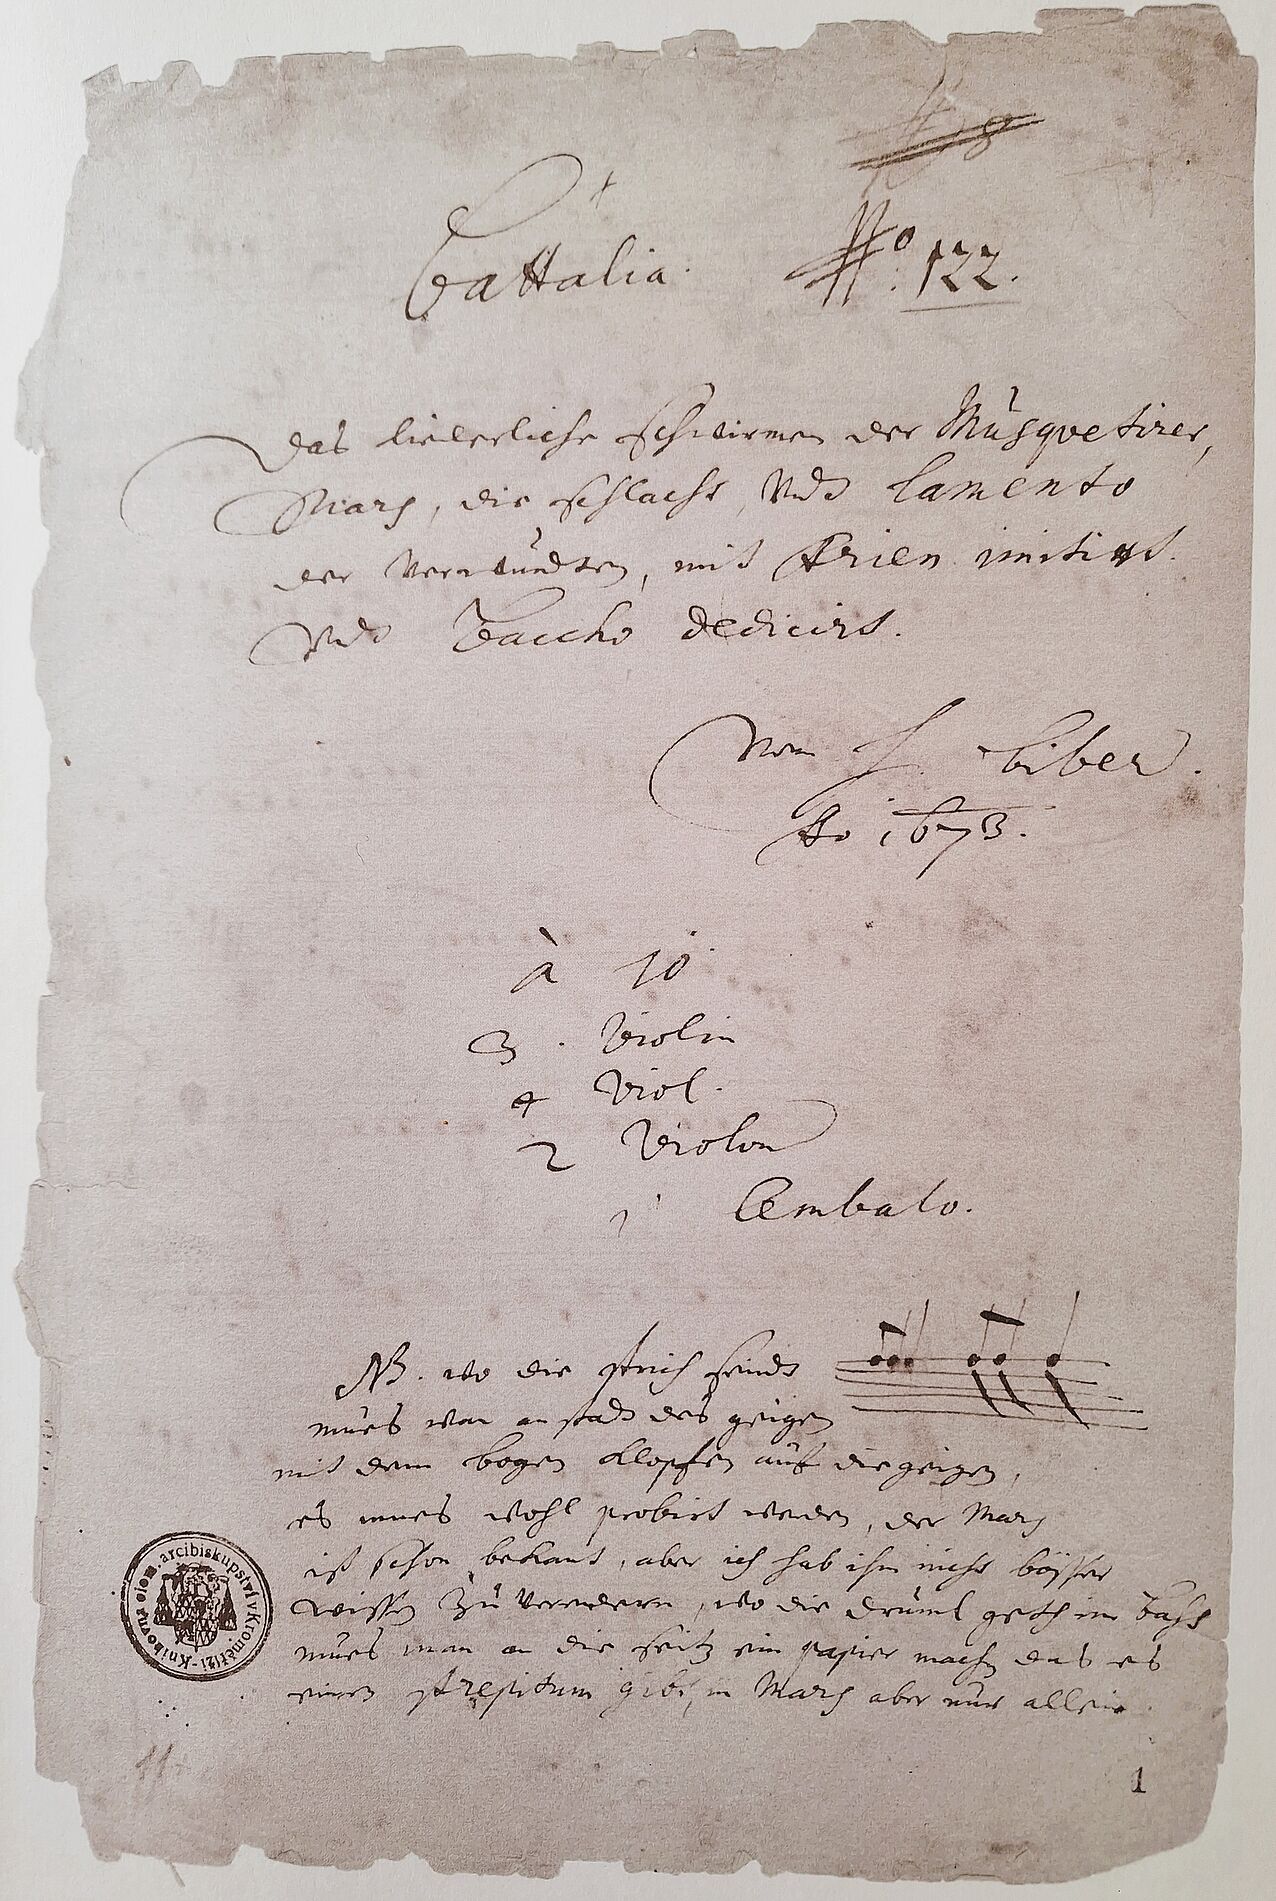 Battalia. No. 122.
Das liederliche schwirmen der Musquetirer,
Mars, die schlacht, Undt Lamento
der Verwundten, mit Arien imitirt.
Undt Baccho dedicirt.
Von H. Biber.
Ao 1673.
à 10
3. Violin
4 Viol.
2 Violon
1 Cembalo.
NB. wo die strich seindt
mues man anstadt des geigen
mit dem bogen klopfen auf die geigen,
es mues wohl probirt werden, der Mars
ist schon bekant, aber ich hab ihn nicht bösser
wissen zu verwendern, wo die druml geth im Bass
mues man an die seitn ein papier machen das es
einen strepitum gibt, in Mars aber nur allein.
Knihovna arcibiskupství v Kroměříži
1